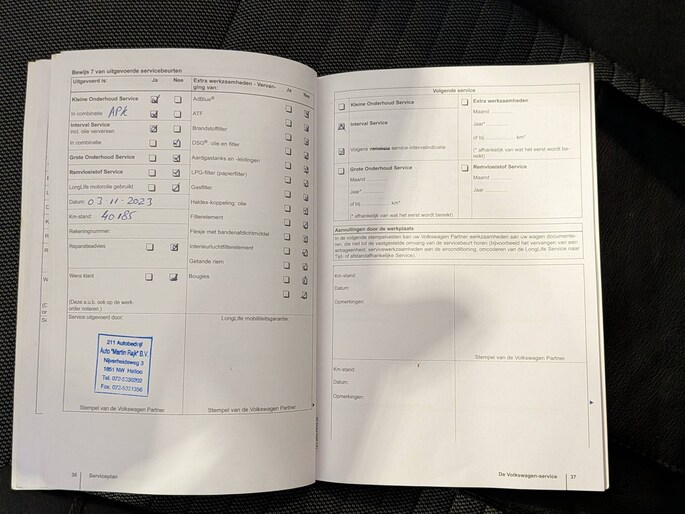 Bewijs 7 van uitgevoerde servicebeurten
Uitgevoerd is: Ja Nee
Kleine Onderhoud Service
In combinatie APK
Interval Service
incl. olie verversen
In combinatie
Grote Onderhoud Service
Remvloeistof Service
LongLife motorolie gebruikt
Datum: 03-11-2023
Km-stand: 40185
Rekeningnummer:
Reparatieadvies
Wens klant
(Deze a.u.b. ook op de werk-
order noteren.)
Service uitgevoerd door:
211 Autobedrijf
Auto "Martin Rajk" B.V.
Nijverheidsweg 3
1851 NW Heiloo
Stempel van de Volkswagen Partner
Extra werkzaamheden - Vervan-
ging van: Ja Nee
AdBlue®
ATF
Brandstoffilter
DSG®: olie en filter
Aardgastanks en -leidingen
LPG-filter (papierfilter)
Gasfilter
Haldex-koppeling: olie
Filterelement
Flesje met bandenafdichtmiddel
Interieurluchtfilterelement
Getande riem
Bougies
LongLife mobiliteitsgarantie:
Stempel van de Volkswagen Partner
36 Serviceplan
Volgende service
Kleine Onderhoud Service
Interval Service
Volgens service-intervalindicatie
Grote Onderhoud Service
Maand
Jaar*
of bij km*
(* afhankelijk van wat het eerst wordt bereikt)
Extra werkzaamheden
Maand
Jaar*
of bij km*
(* afhankelijk van wat het eerst wordt be-
reikt)
Remvloeistof Service
Maand
Jaar
Aanvullingen door de werkplaats
In de volgende stempelvelden kan uw Volkswagen Partner werkzaamheden aan uw wagen documente-
ren, die niet tot de vastgestelde omvang van de servicebeurt horen (bijvoorbeeld het vervangen van een
actiegedeelte, servicewerkzaamheden aan de airconditioning, omcoderen van de LongLife Service naar
Tijd- of afstandafhankelijke Service).
Km-stand:
Datum:
Opmerkingen:
Stempel van de Volkswagen Partner
Km-stand:
Datum:
Opmerkingen:
Stempel van de Volkswagen Partner
De Volkswagen-service 37